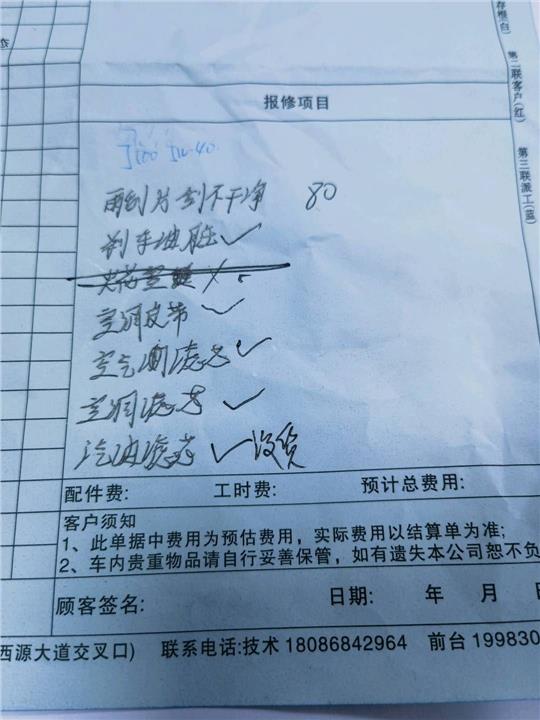 存根(白)
第二联客户(红)
第三联派工(蓝)
报修项目
雨刮片刮不干净 80
刹车油 ✓
火花塞 ×
空调皮带 ✓
空气滤芯 ✓
空调滤芯 ✓
汽油滤芯 ✓ 没货
配件费: 工时费: 预计总费用:
客户须知
1、此单据中费用为预估费用，实际费用以结算单为准;
2、车内贵重物品请自行妥善保管，如有遗失本公司恕不负
顾客签名: 日期: 年 月 日
西源大道交叉口) 联系电话:技术 18086842964 前台 199830